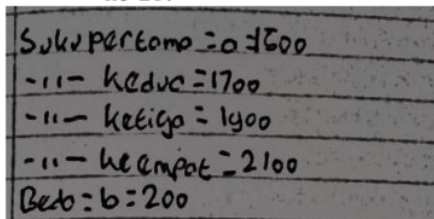 Suku pertama = a = 1500
-11- kedua = 1700
-11- ketiga = 1900
-11- keempat = 2100
Beda = b = 200